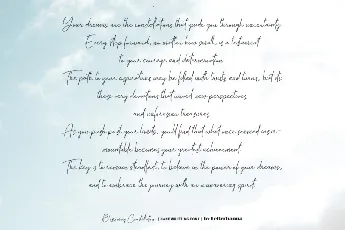 Your dreams are the constellations that guide you through uncertainty.
Every step forward, no matter how small, is a testament
to your courage and determination.
The path to your aspirations may be filled with twists and turns, but it's
these very deviations that unveil new perspectives
and unforeseen treasures.
As you push past your limits, you'll find that what once seemed insur-
mountable becomes your greatest achievement.
The key is to remain steadfast, to believe in the power of your dreams,
and to embrace the journey with an unwavering spirit.
| HANDWRITTEN FONT | by